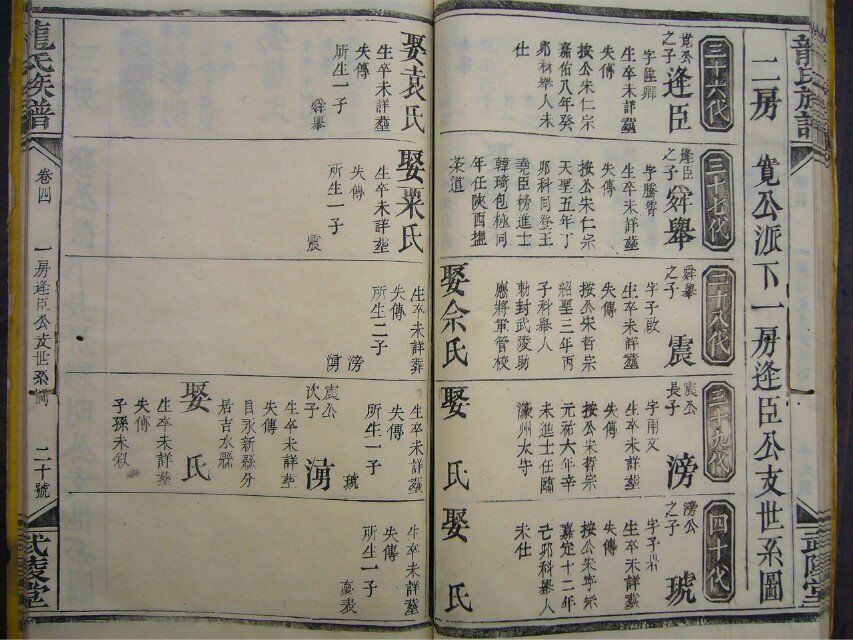 龍氏族譜
二房 寬公派下一房逄臣公支世系圖
武陵堂
三十六代
寬公之子 逄臣
字陛卿
生卒未詳葬
失傳
按公朱仁宗
嘉佑八年癸
卯科舉人未
仕
娶袁氏
生卒未詳葬
失傳
所生一子
舜舉
三十七代
逄臣之子 舜舉
字騰霄
生卒未詳葬
失傳
按公朱仁宗
天聖五年丁
卯科同登王
堯臣榜進士
韓琦包極同
年任陝西搵
茶道
娶粟氏
生卒未詳葬
失傳
所生一子
震
三十八代
舜舉之子 震
字子啟
生卒未詳葬
失傳
按公宋哲宗
紹聖三年丙
子科舉人
勅封武陵助
應將軍管校
娶佘氏
生卒未詳葬
失傳
所生二子
滂
湧
三十九代
震公長子 滂
字甫文
生卒未詳葬
失傳
按公宋哲宗
元祐六年辛
未進士任臨
濠州太守
娶 氏
生卒未詳葬
失傳
所生一子
琥
震公次子 湧
生卒未詳葬
失傳
自永新縣分
居吉水縣
娶 氏
生卒未詳葬
失傳
子孫未叙
四十代
滂公之子 琥
字子岩
生卒未詳葬
失傳
按公宋寧宗
嘉定十二年
己卯科舉人
未仕
娶 氏
生卒未詳葬
失傳
所生一子
龍氏族譜
卷四
一房逄臣公支世系圖
二十號
武陵堂